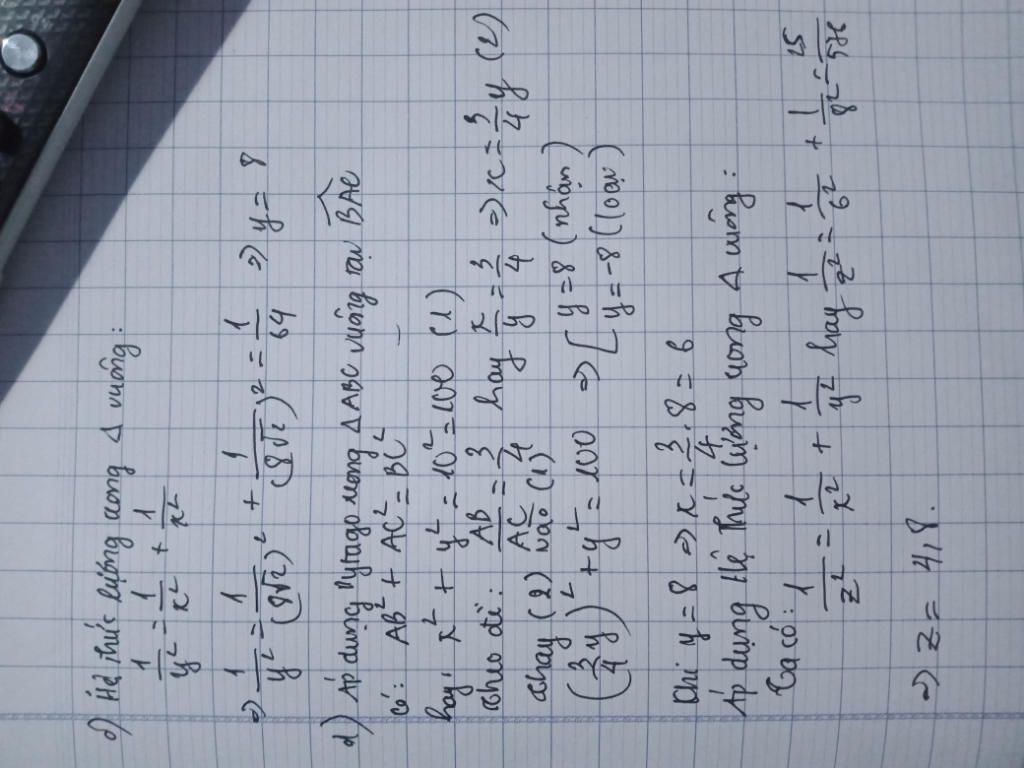 δ) Hệ thức lượng trong Δ vuông:
1/y² = 1/x² + 1/x²
=> 1/y² = 1/(8√2)² + 1/(8√2)² = 1/64 => y = 8
d) Áp dụng Pytago trong ΔABC vuông tại BAC
có: AB² + AC² = BC²
hay: x² + y² = 10² = 100 (1)
theo đề: AB/AC = 3/4 hay x/y = 3/4 => x = 3/4 y (2)
thay (2) vào (1)
(3/4 y)² + y² = 100 => [ y = 8 (nhận)
y = -8 (loại)
Khi y = 8 => x = 3/4 . 8 = 6
Áp dụng Hệ Thức lượng trong Δ vuông:
Ta có: 1/z² = 1/x² + 1/y² hay 1/z² = 1/6² + 1/8² = 25/576
=> z = 4,8.